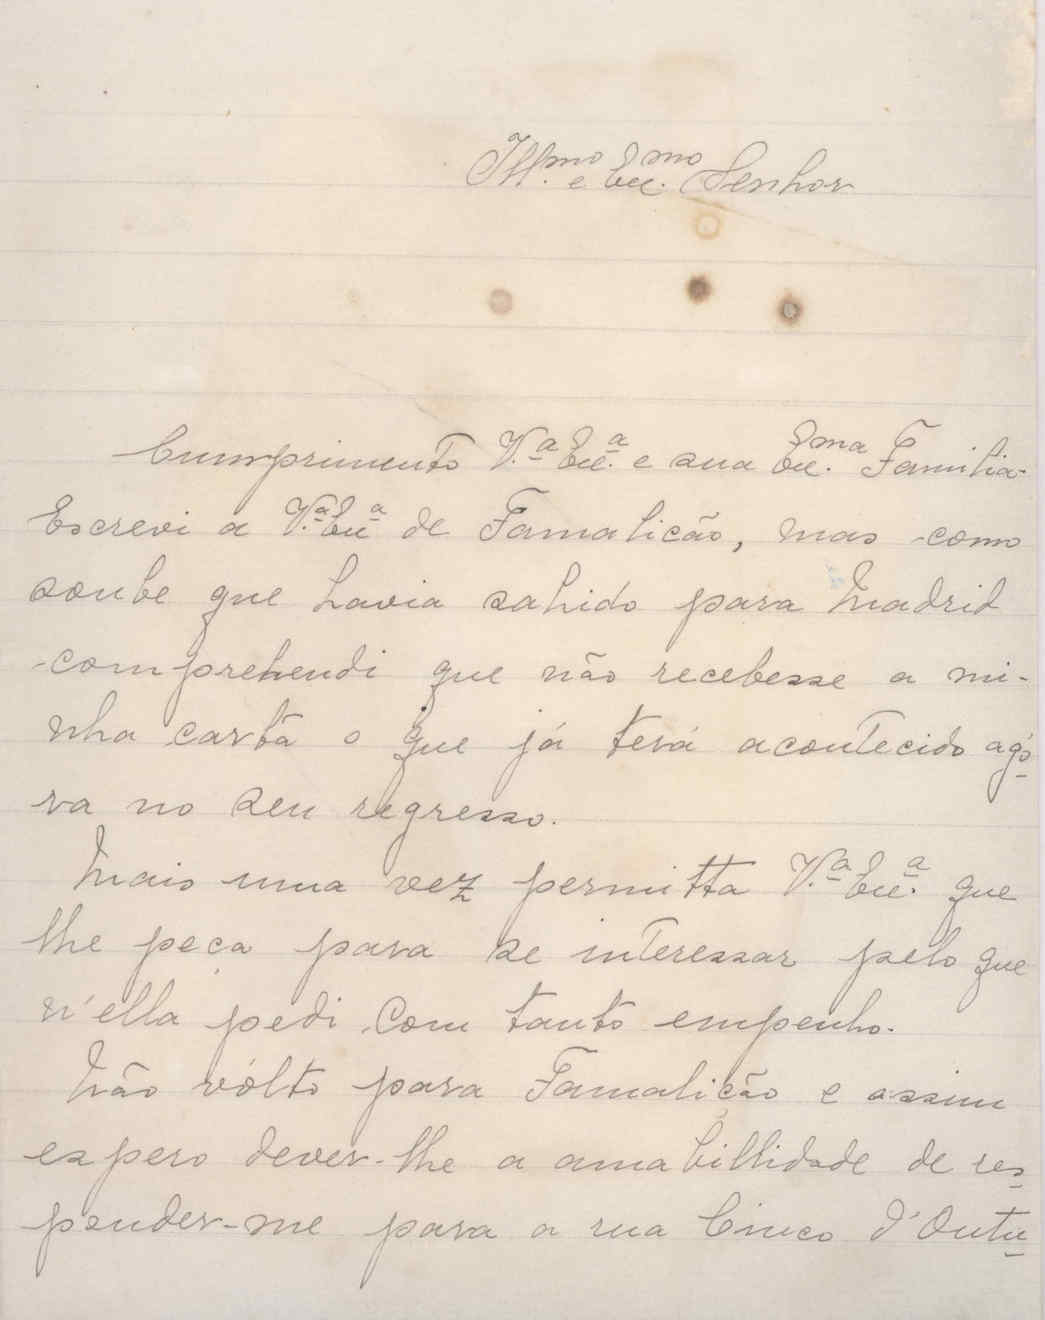 Ill.mo e Exc.mo Senhor
Cumprimento V.ª Exc.ª e sua Exc.ma Familia.
Escrevi a V.ª Exc.ª de Famalicão, mas como
soube que havia sahido para Madrid
comprehendi que não recebesse a mi-
nha carta o que já terá acontecido agó-
ra no seu regresso.
Mais uma vez permitta V.ª Exc.ª que
lhe peça para se interessar pelo que
n'ella pedi com tanto empenho.
Não vólto para Famalicão e assim
espero dever-lhe a amabillidade de res-
ponder-me para a rua Cinco d'Outu-